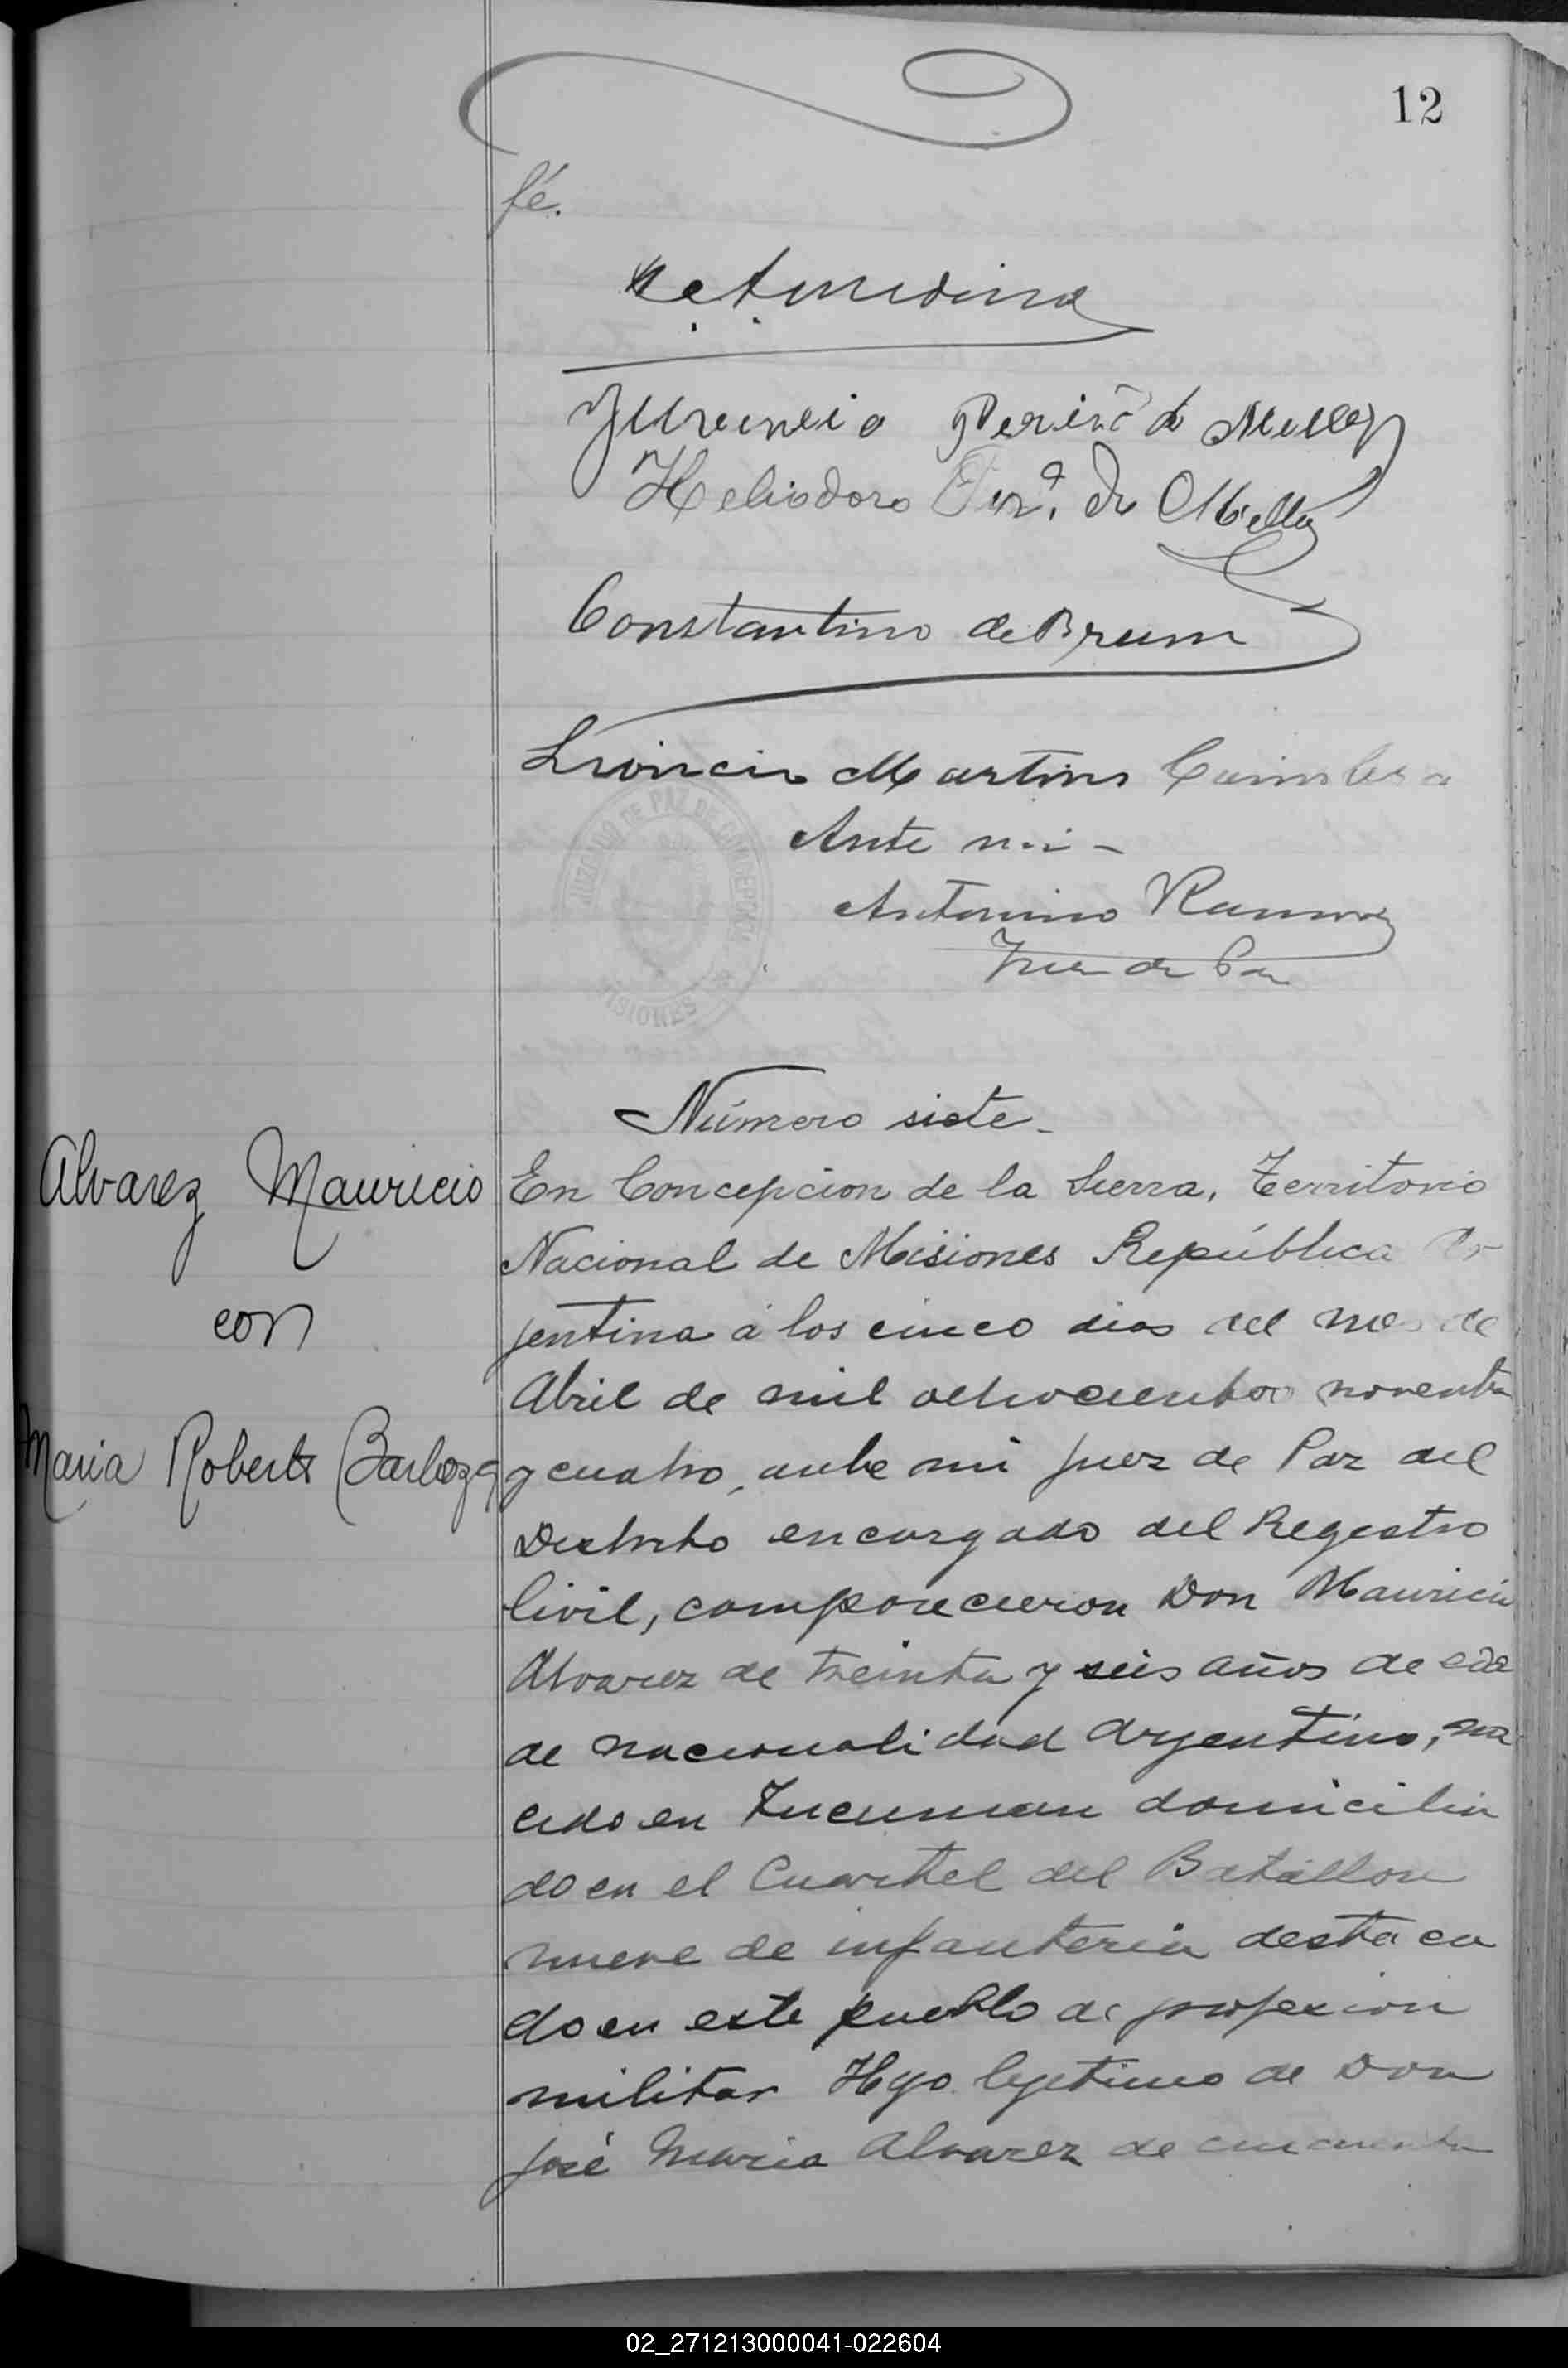 12
fé.
Heliodoro Per.ª de Mello
Constantino de Brum
Leoncio Martins
Ante mi -
Antonino Ramos
Juez de Paz
JUZGADO DE PAZ DE CONCEPCION
MISIONES
Número siete -
Alvarez Mauricio
con
Maria Roberta Barboza
En Concepcion de la Sierra, Territorio
Nacional de Misiones República Ar
jentina á los cinco dias del mes de
Abril de mil ochocientos noventa
y cuatro, ante mi juez de Paz del
Distrito encargado del Registro
Civil, comparecieron Don Mauricio
Alvarez de treinta y seis años de eda
de nacionalidad Argentino, na
cido en Tucuman domicilia
do en el Cuartel del Batallon
nueve de infanteria destaca
do en este pueblo de profexion
militar Hijo lejitimo de Don
José Maria Alvarez de cincuenta
02_271213000041-022604